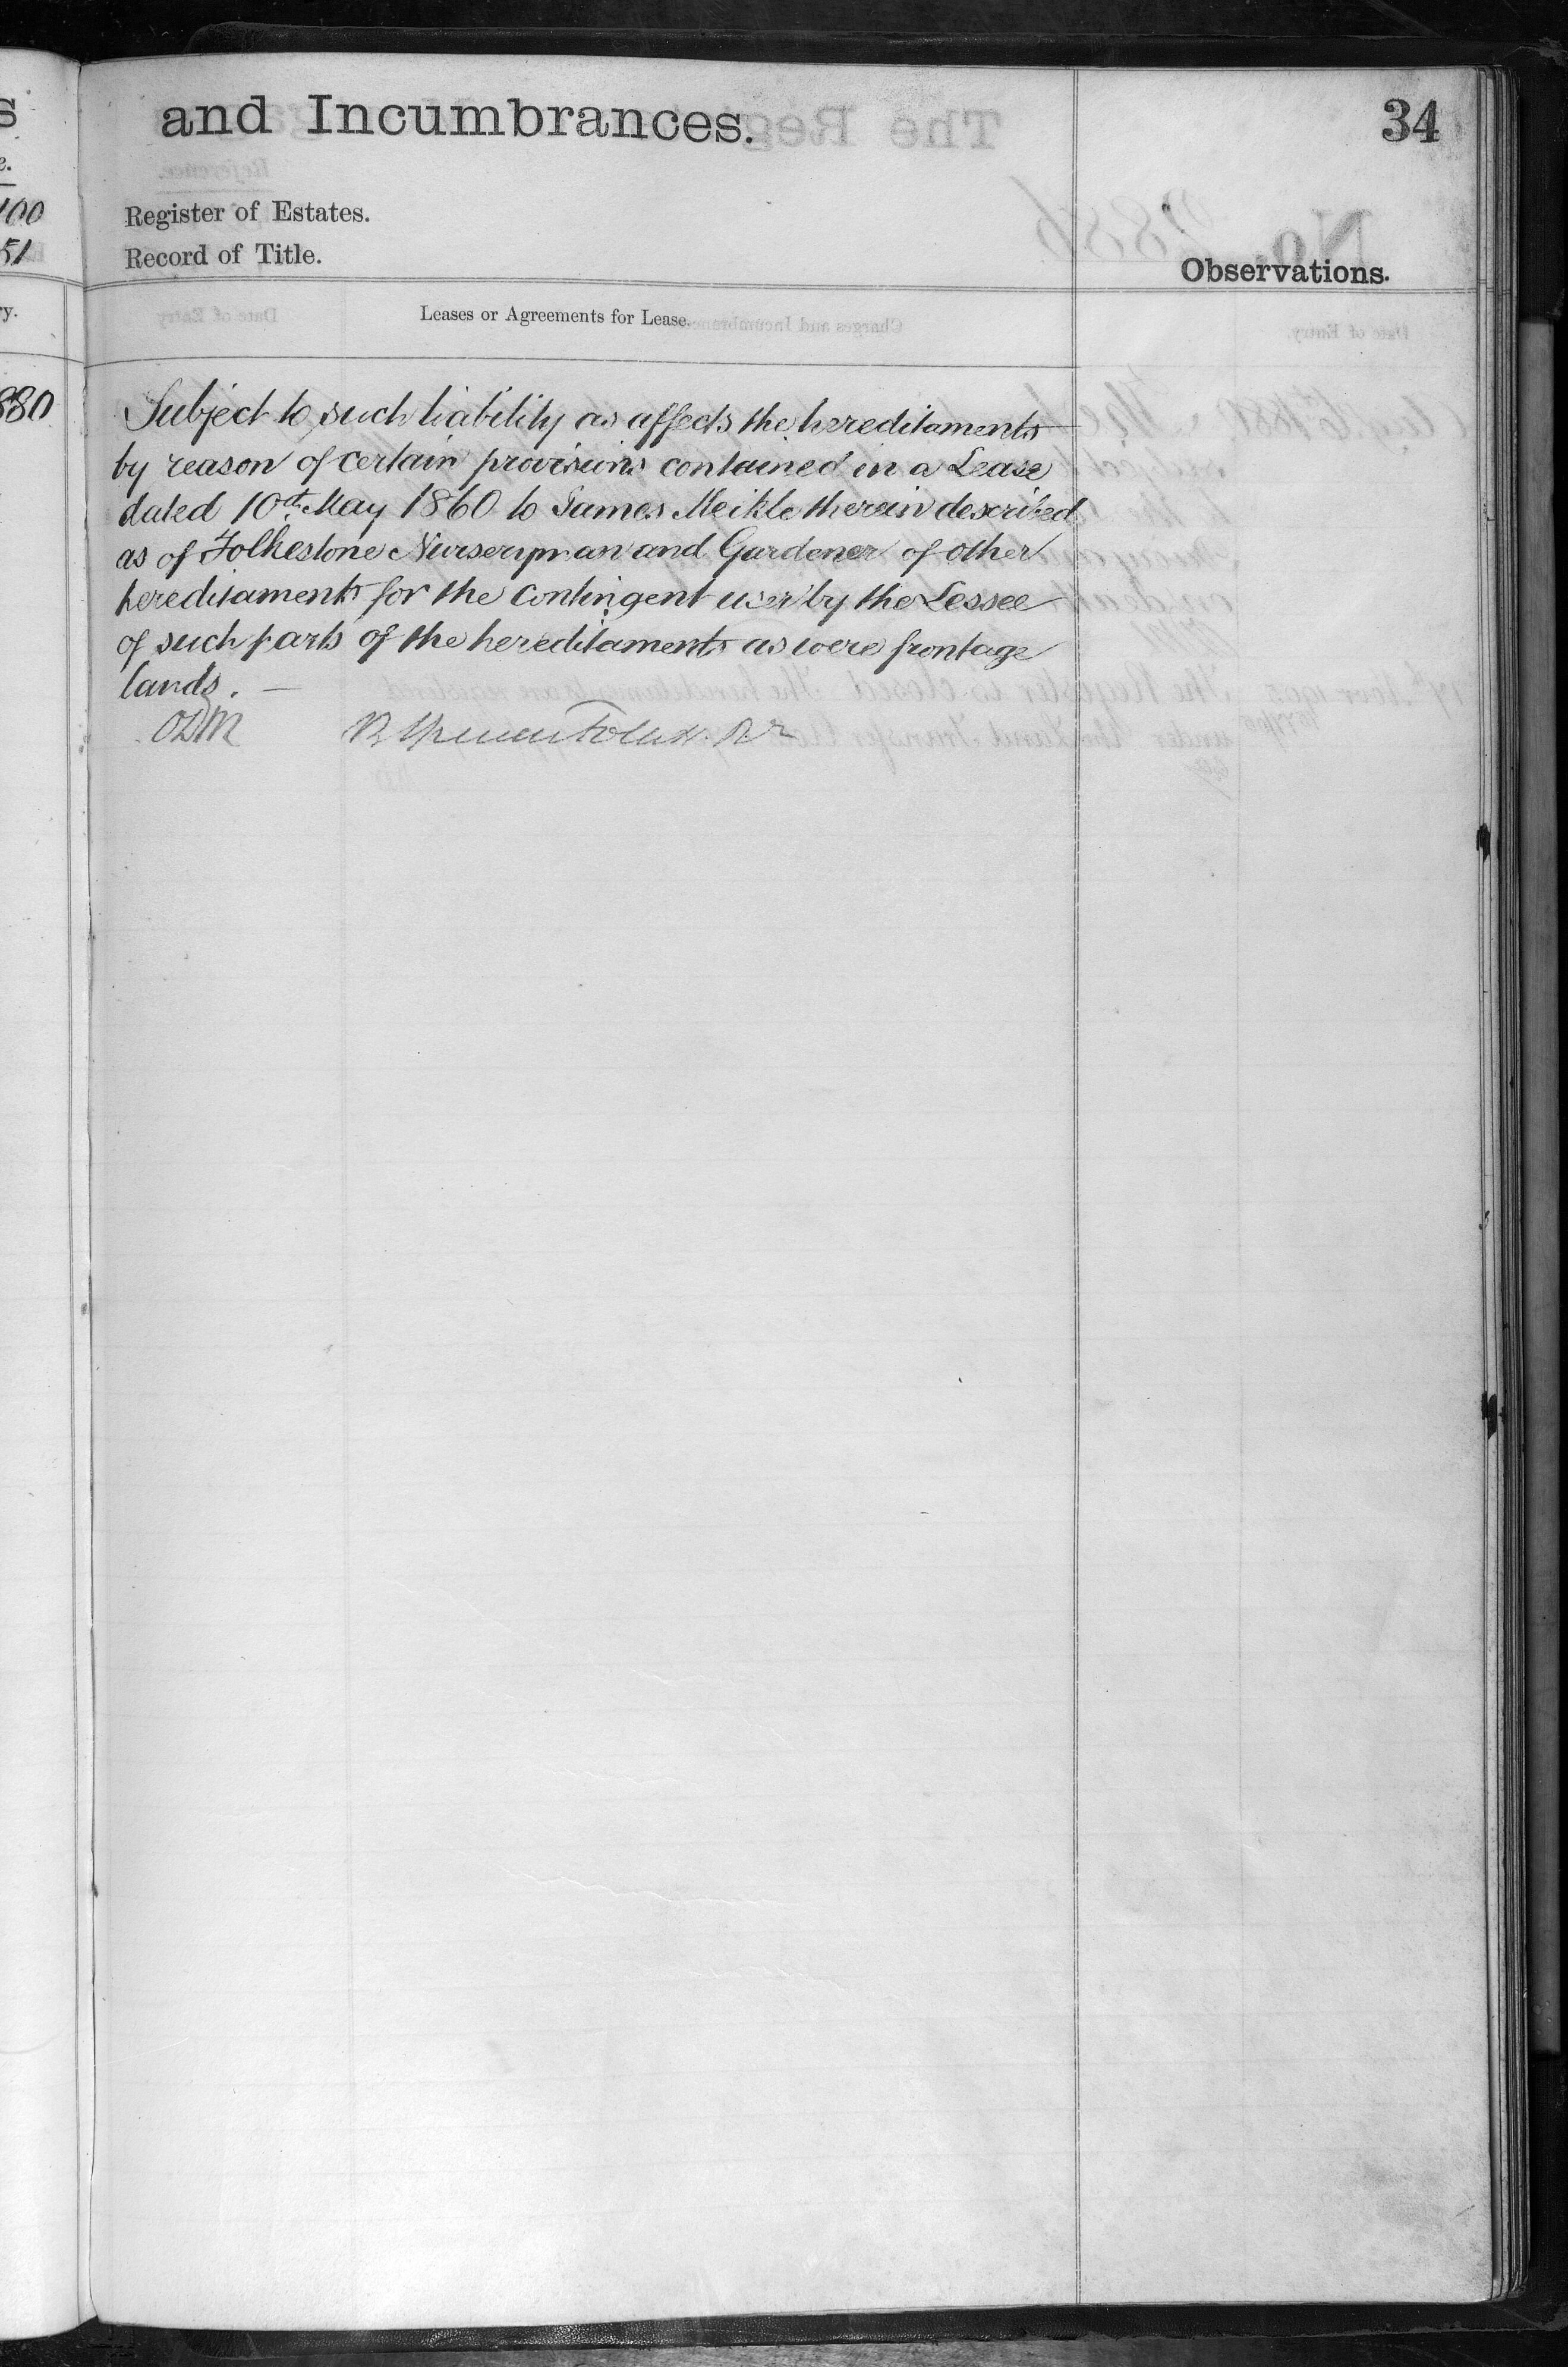 and Incumbrances.
34
Register of Estates.
Record of Title.
Observations.
Leases or Agreements for Lease.
Subject to such liability as affects the hereditaments
by reason of certain provisions contained in a Lease
dated 10th May 1860 to James Meikle therein described
as of Folkestone Nurseryman and Gardener of other
hereditaments for the contingent user by the Lessee
of such parts of the hereditaments as were frontage
lands. —
ODM
100
51
880